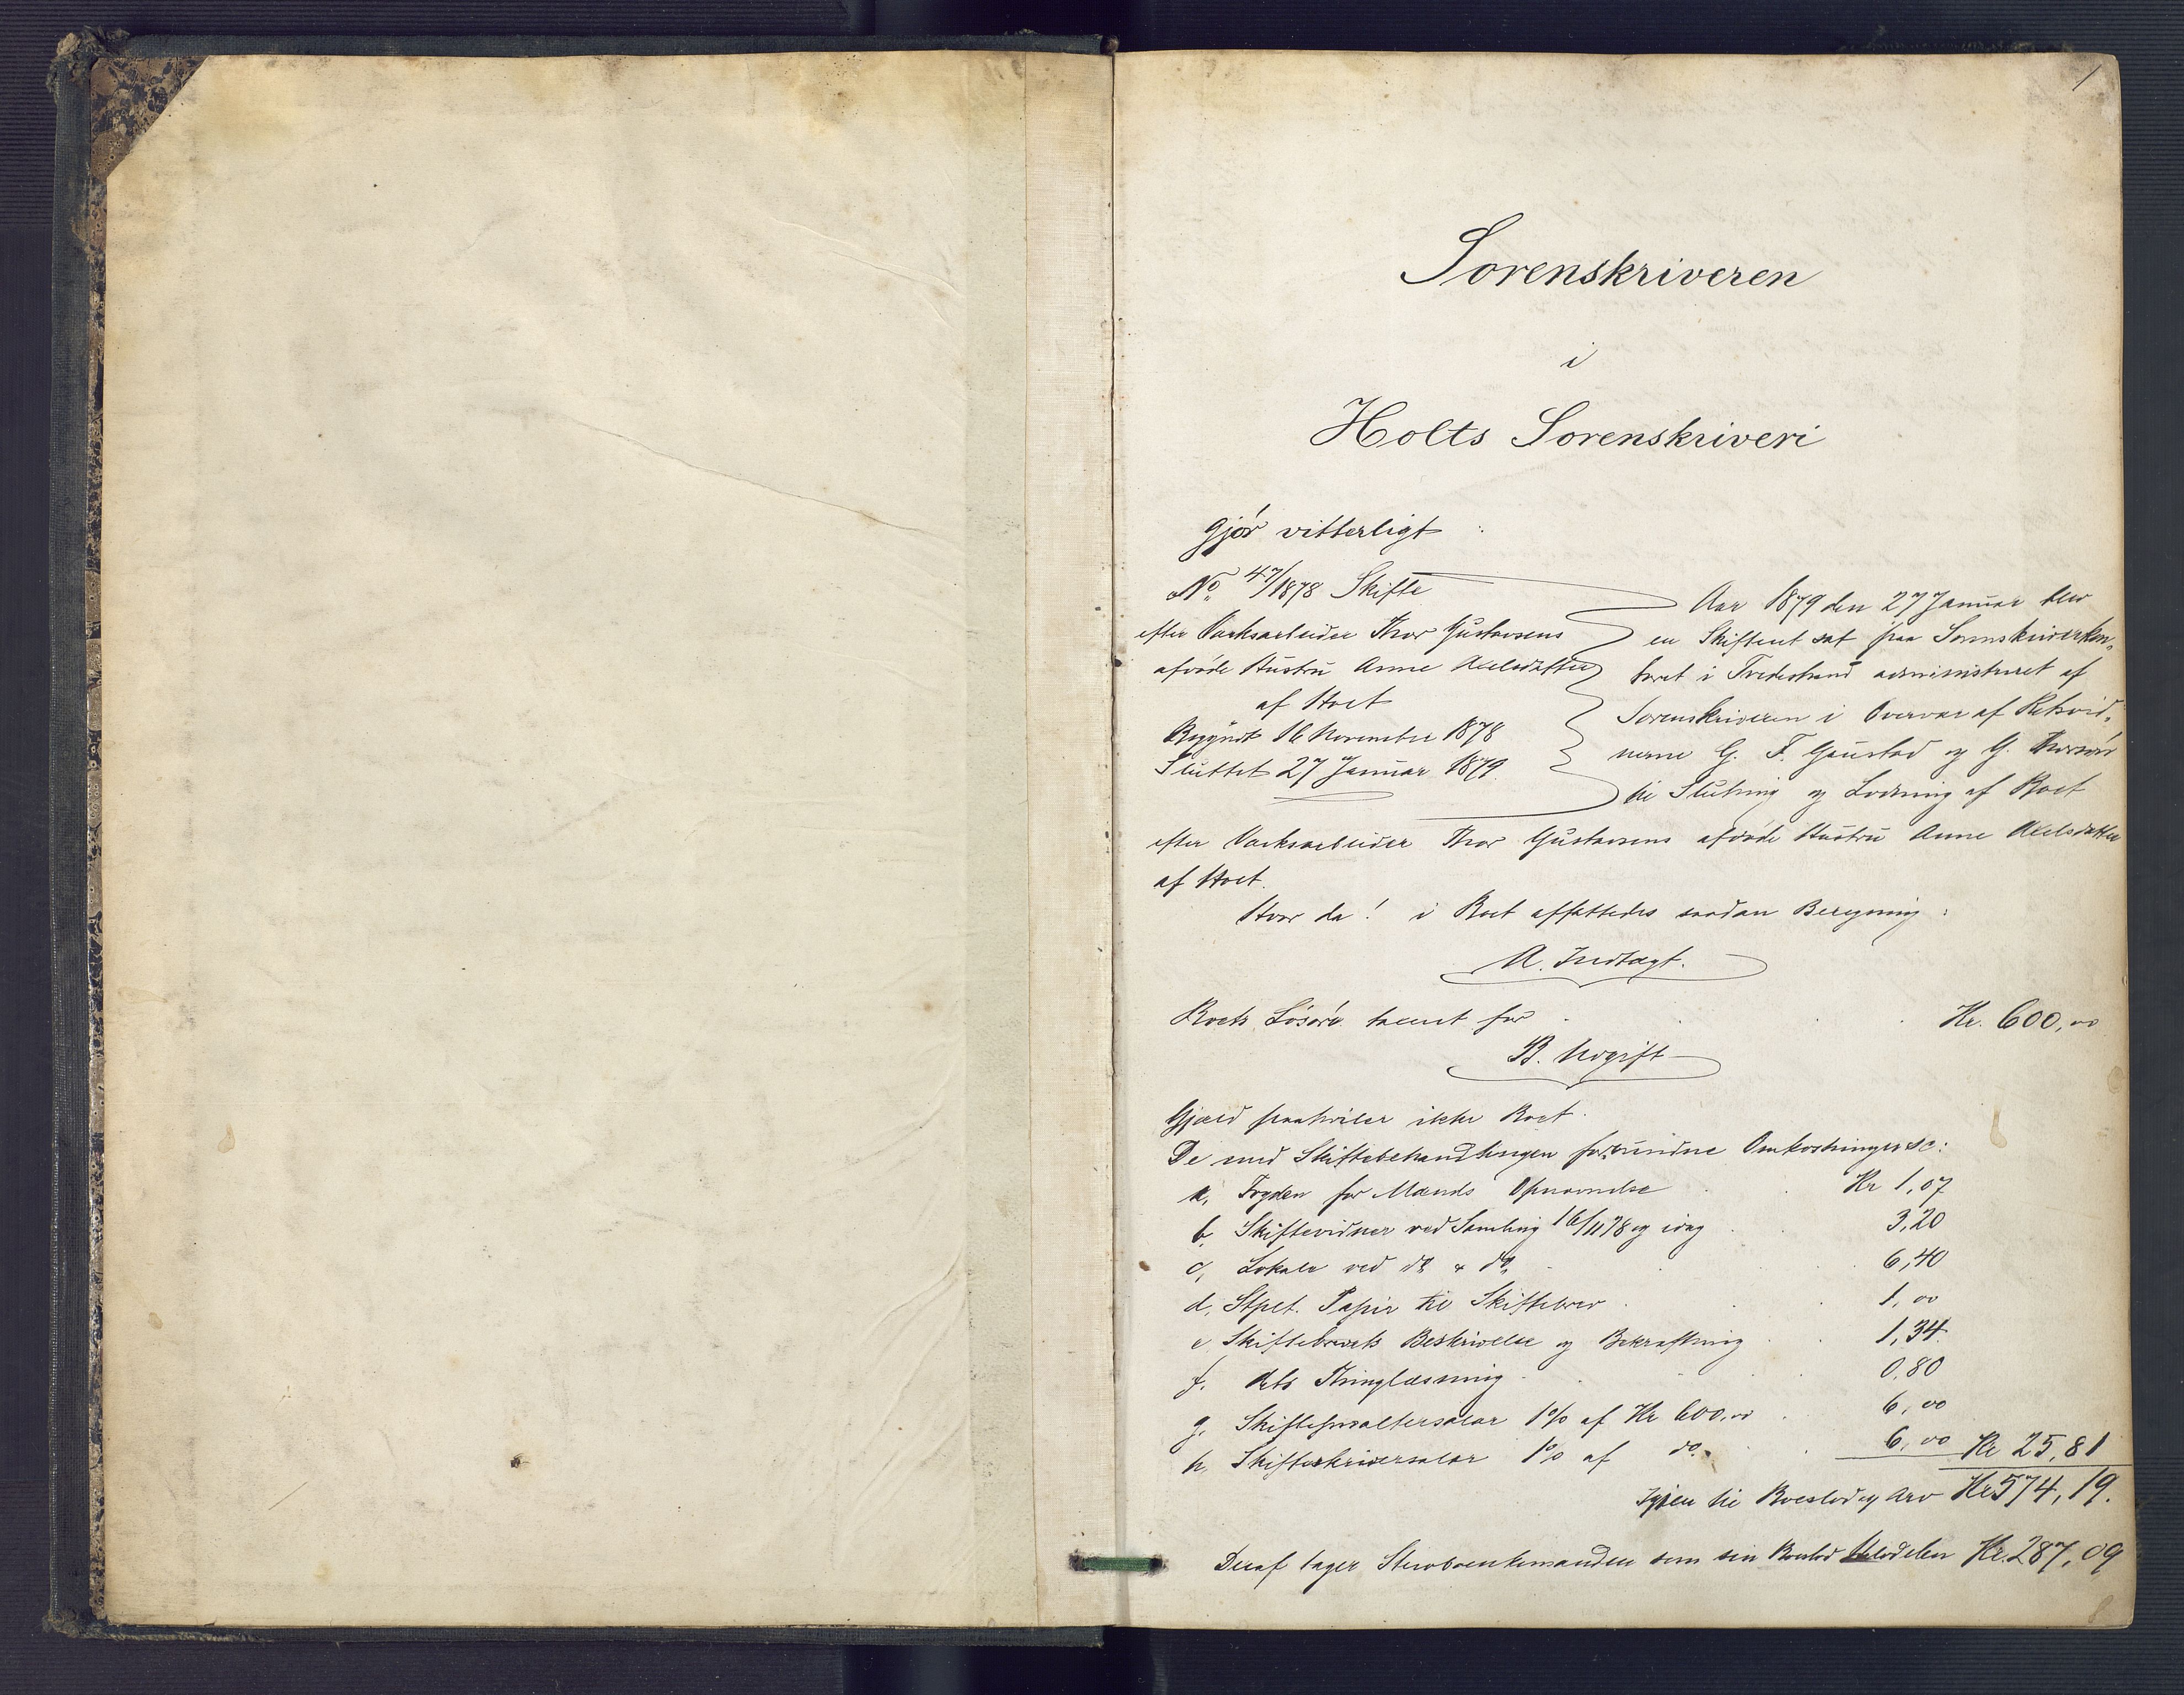 1
Sorenskriveren
i
Holts Sorenskriveri
Gjør vitterligt
No. 47/1878 Skifte
efter Værksarbeider Thor Gustavsens
afdøde Hustru Anne Axelsdatter
af Holt
Begyndt 16 November 1878
Sluttet 27 Januar 1879
Aar 1879 den 27 Januar blev
en Skifteret sat paa Sorenskriverkon„
toret i Tvedestrand administreret af
Sorenskriveren i Overvær af Retsvid„
nerne G. F. Goustad og G.
til Slutning og Lodning af Boet
efter Værksarbeider Thor Gustavsens afdøde Hustru Anne Axelsdatter
af Holt.
Hvor da! i Boet affattedes saadan Beregning:
A. Indtægt.
Boets Løsøre taxeret for Kr. 600,00
B. Udgift
Gjæld paahviler ikke Boet.
De med Skiftebehandlingen forbundne Omkostninger sc:
a, Fogden for Mænds Opnævnelse Kr 1,07
b, Skiftevidner ved Samling 16/11 78 og idag 3,20
c, Lokale ved do & do 6,40
d, Stplt. Papir til Skiftebrev 1,00
e Skiftebrevets Beskrivelse og Bekræftning 1,34
f. dets Thinglæsning 0,80
g. Skifteforvaltersalær 1% af Kr 600,00 6,00
h, Skifteskriversalær 1% af do. 6,00 Kr 25,81
Igjen til Boeslod og Arv Kr 574,19.
Deraf tager Stervboenkemanden som sin Boslod Halvdelen Kr. 287,09
8